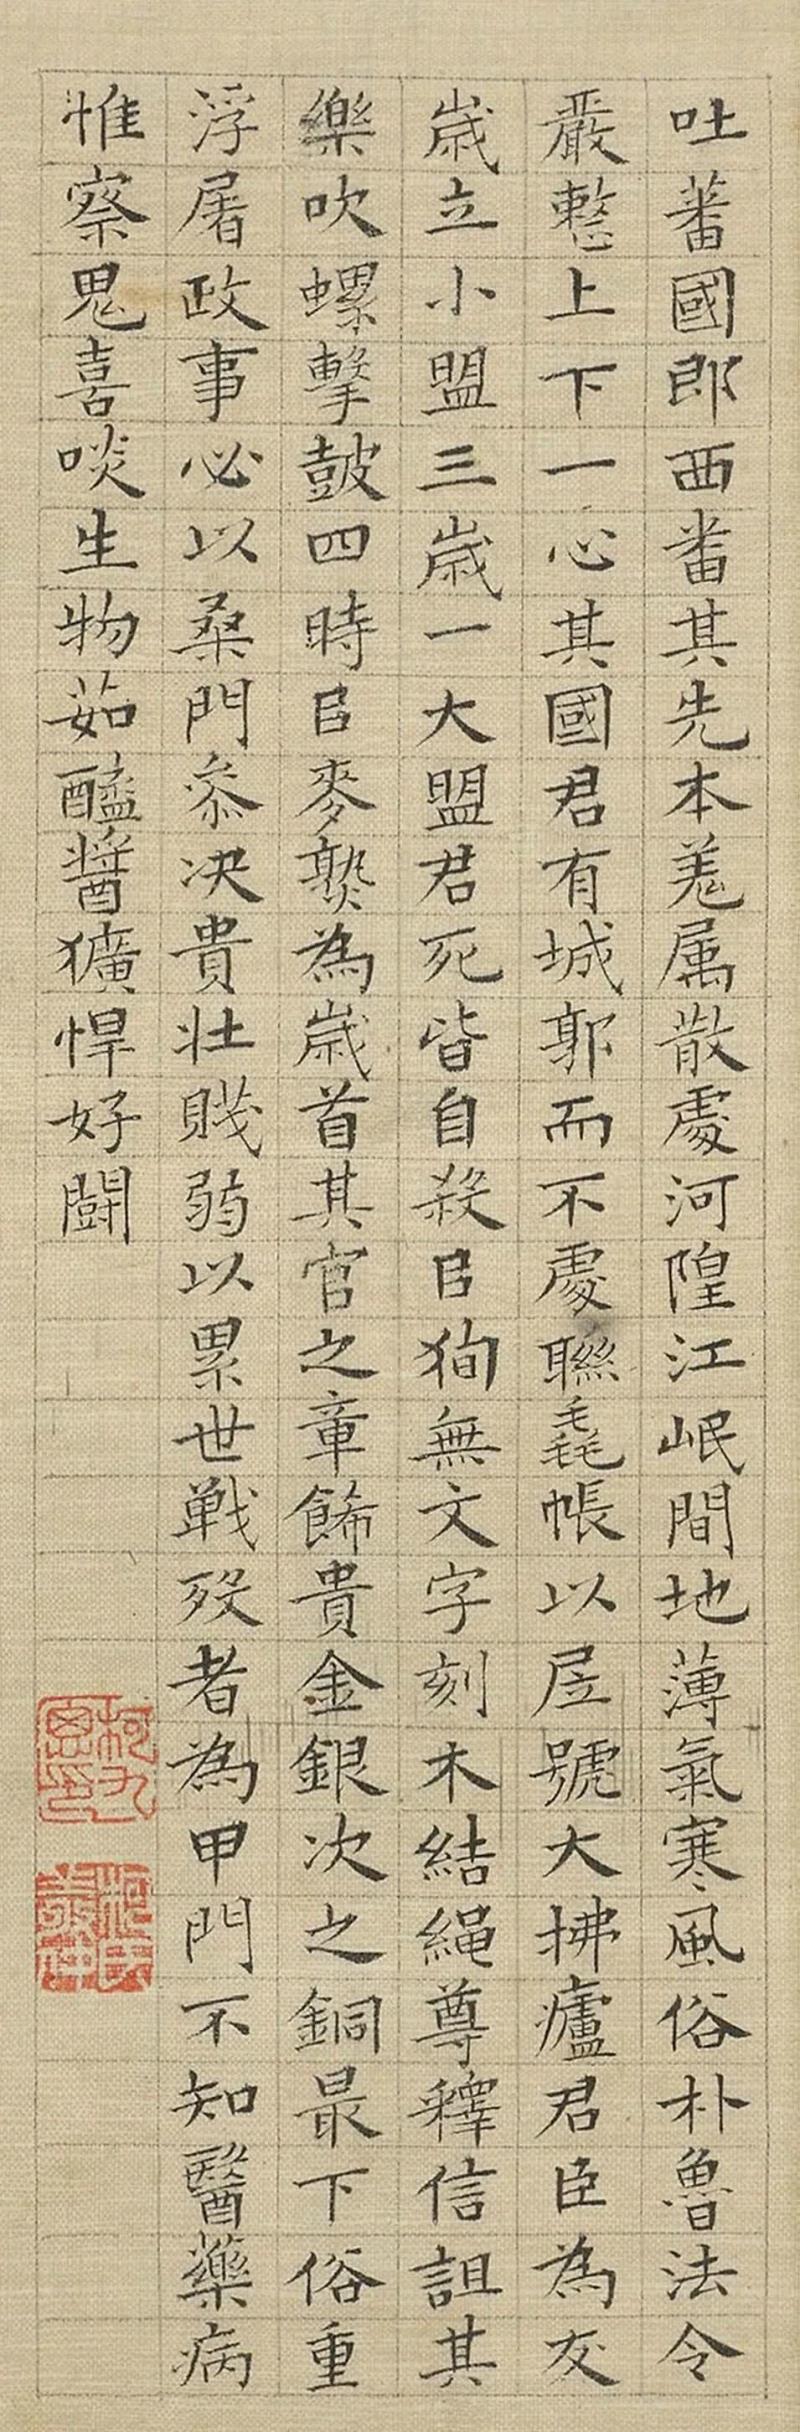 吐蕃國郎西番其先本羗属散處河隍江岷間地薄氣寒風俗朴魯法令
嚴整上下一心其國君有城郭而不處聯毳帳以居號大拂廬君臣為友
歳立小盟三歳一大盟君死皆自殺㠯狥無文字刻木結繩尊釋信詛其
樂吹螺擊皷四時㠯麥熟為歳首其官之章飾貴金銀次之銅最下俗重
浮屠政事必以桑門叅决貴壮賤弱以累世戰歿者為甲門不知醫藥病
惟察鬼喜啖生物茹醯醬獷悍好鬪
柯九思印